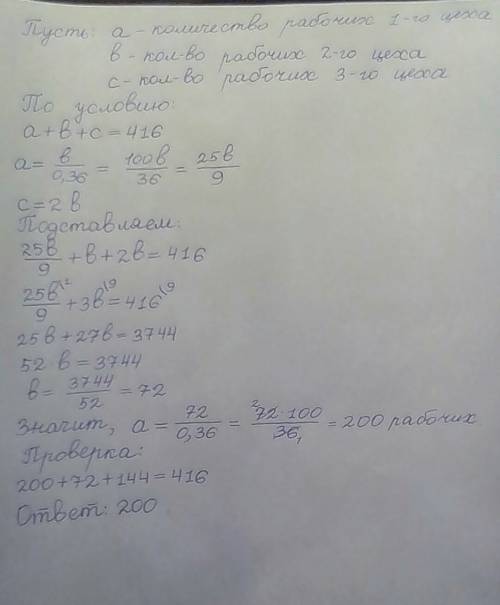 Пусть: а - количество рабочих 1-го цеха
в - кол-во рабочих 2-го цеха
с - кол-во рабочих 3-го цеха
По условию:
а+в+с=416
а= в/0,36 = 100в/36 = 25в/9
с=2в
Подставляем:
25в/9 + в+2в=416
25в\¹²/9 + 3в\⁹=416\⁹
25в+27в=3744
52 в=3744
в= 3744/52 =72
Значит, а= 72/0,36 = ²72·100/36₁ = 200 рабочих
Проверка:
200+72+144=416
Ответ: 200